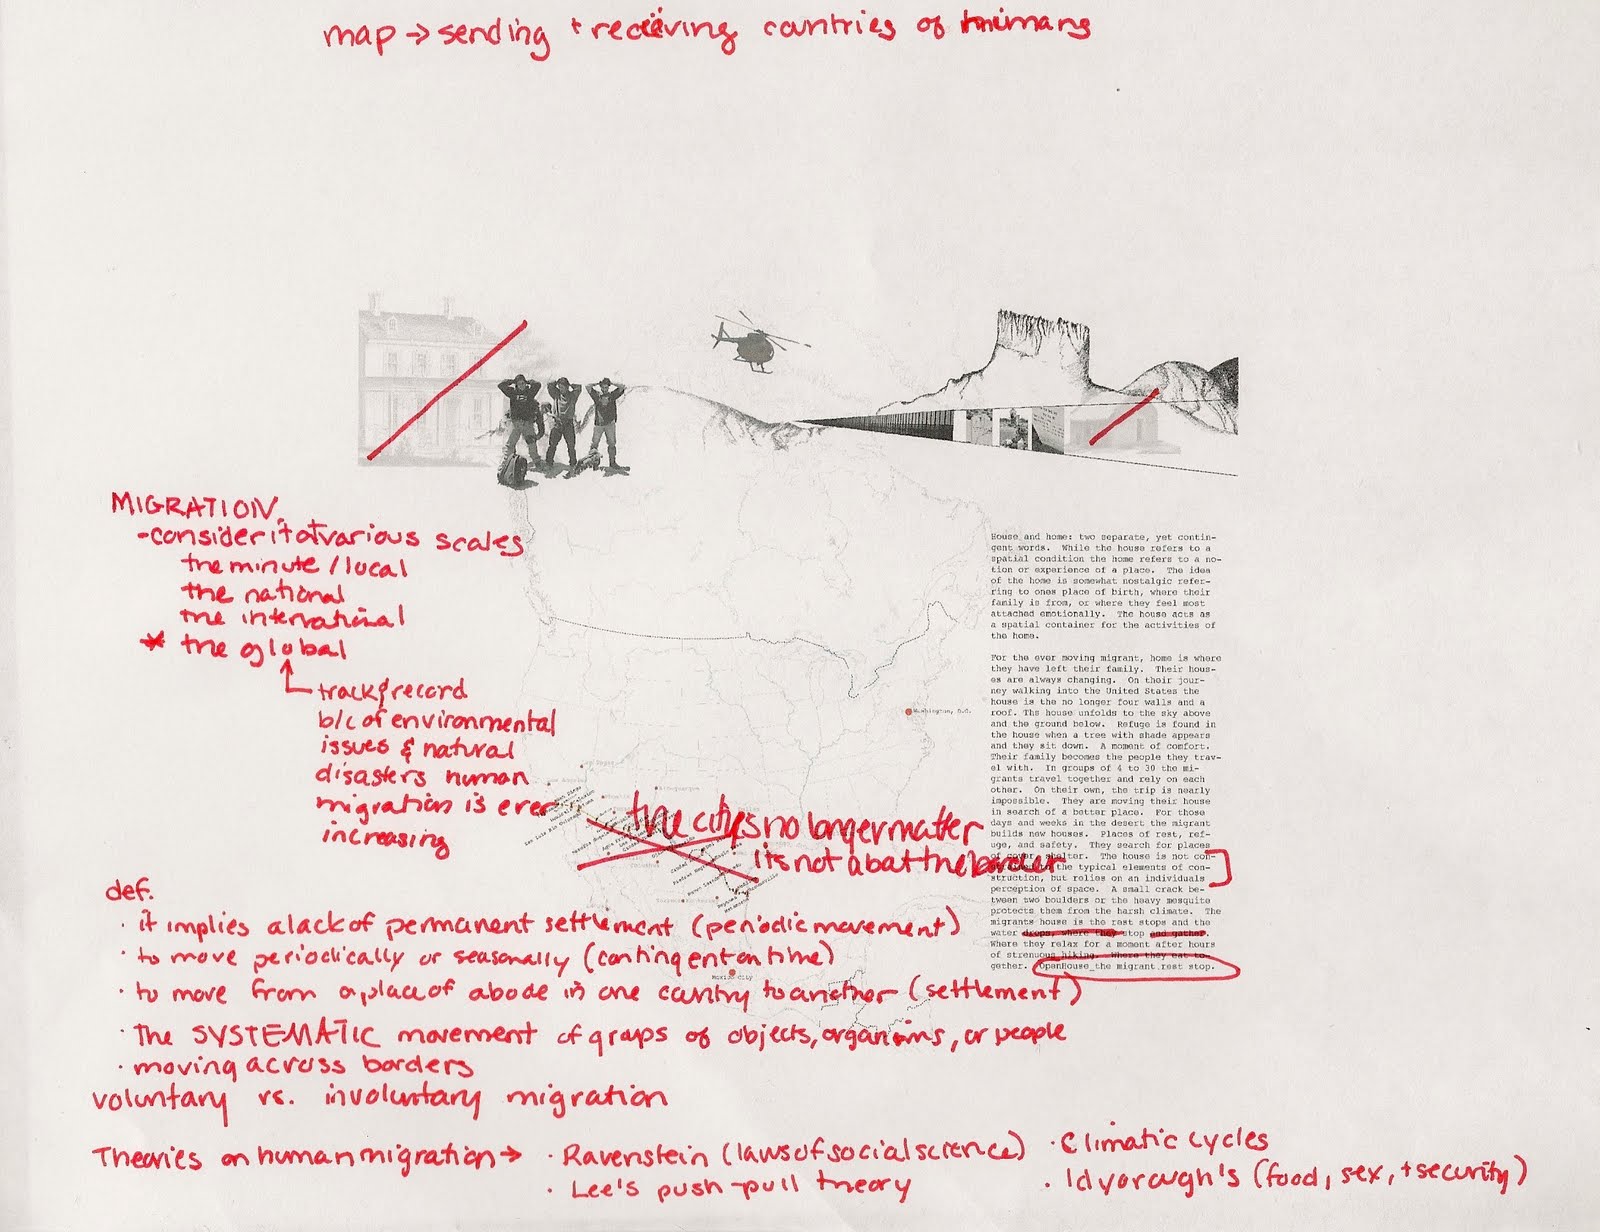 map → sending + recieving countries of humans
MIGRATION
- consider it at various scales
the minute / local
the national
the international
* the global
track & record
b/c of environmental
issues & natural
disasters human
migration is ever
increasing
the citys no longer matter
its not about the border
Washington, D.C.
Mexico City
House and home: two separate, yet contin-
gent words. While the house refers to a
spatial condition the home refers to a no-
tion or experience of a place. The idea
of the home is somewhat nostalgic refer-
ring to ones place of birth, where their
family is from, or where they feel most
attached emotionally. The house acts as
a spatial container for the activities of
the home.
For the ever moving migrant, home is where
they have left their family. Their hous-
es are always changing. On their jour-
ney walking into the United States the
house is the no longer four walls and a
roof. The house unfolds to the sky above
and the ground below. Refuge is found in
the house when a tree with shade appears
and they sit down. A moment of comfort.
Their family becomes the people they trav-
el with. In groups of 4 to 30 the mi-
grants travel together and rely on each
other. On their own, the trip is nearly
impossible. They are moving their house
in search of a better place. For those
days and weeks in the desert the migrant
builds new houses. Places of rest, ref-
uge, and safety. They search for places
of cover, shelter. The house is not con-
the typical elements of con-
struction, but relies on an individuals
perception of space. A small crack be-
tween two boulders or the heavy mesquite
protects them from the harsh climate. The
migrants house is the rest stops and the
water drops, where they stop and gather.
Where they relax for a moment after hours
of strenuous hiking. Where they eat to-
gether. OpenHouse the migrant rest stop.
def.
· it implies a lack of permanent settlement (periodic movement)
· to move periodically or seasonally (contingent on time)
· to move from a place of abode in one country to another (settlement)
· The SYSTEMATIC movement of groups of objects, organisms, or people
· moving across borders
voluntary vs. involuntary migration
Theories on human migration → · Ravenstein (laws of social science) · Climatic cycles
· Lee's push-pull theory · Idyorough's (food, sex, + security)